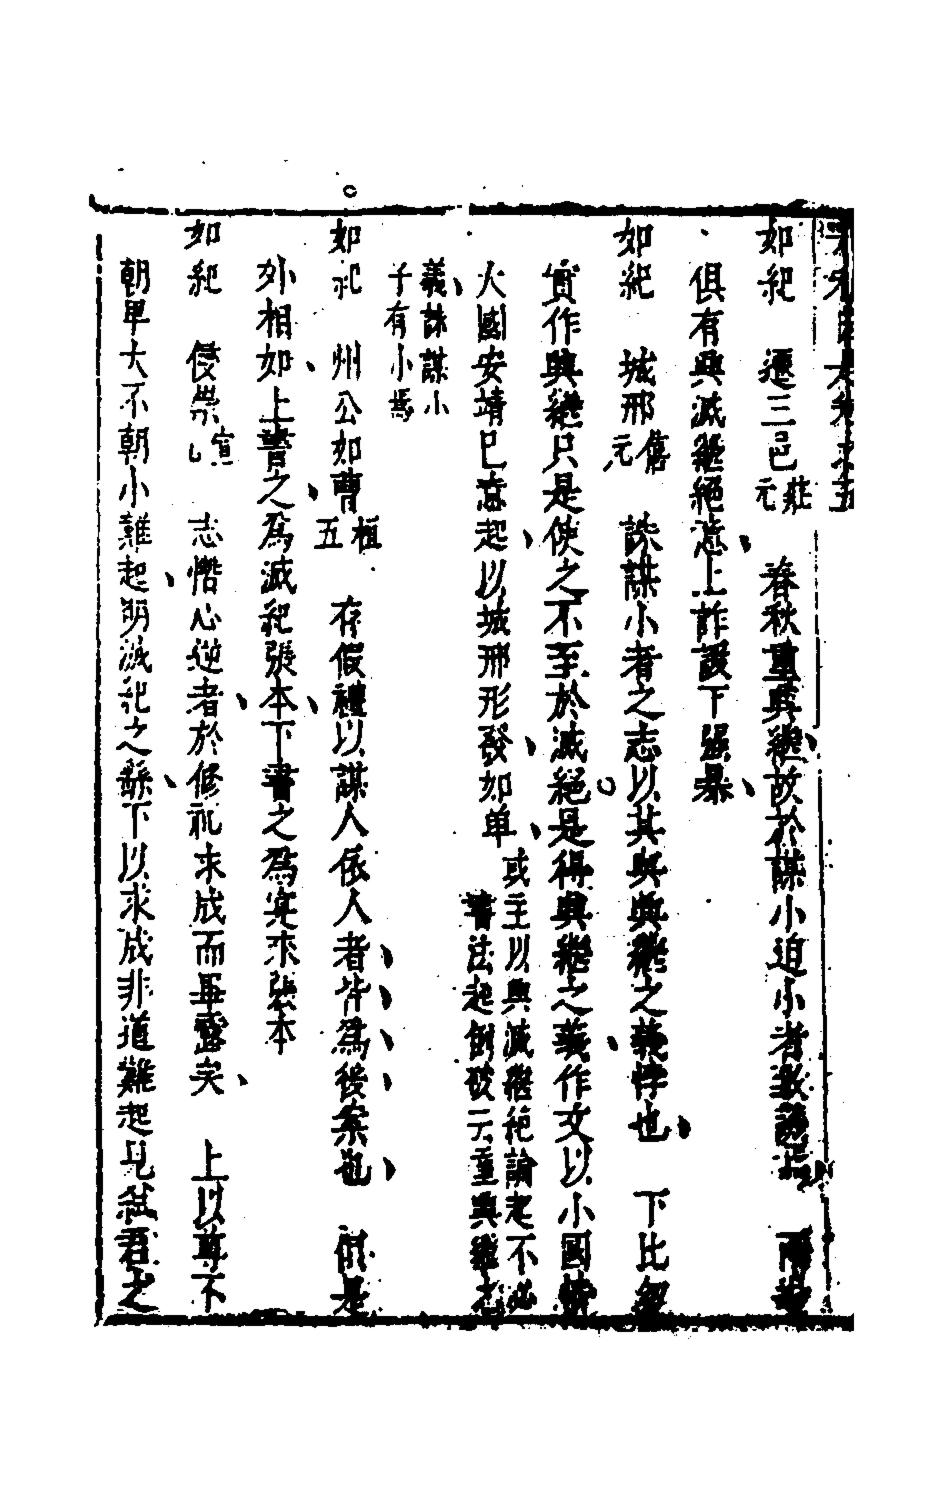 如紀 遷三邑莊元 春秋重興繼故於謀小迫小者致謹焉 兩
俱有興滅繼絕意上詐諼下强暴
如紀 城邢僖元 誅謀小者之志以其與興繼之義悖也 下比
實作興繼只是使之不至於滅絕是得興繼之義作文以小國
大國安靖已意起以城邢形發如单
或主以興滅繼絕論起不必
書法起倒破云重興繼之
義誅謀小
子有小馮
如紀 州公如曹桓五 存假禮以謀人依人者皆爲後案也 但是
外相如上書之爲滅紀張本下書之爲寔來張本
如紀 侵崇宣 志憯心逆者於修礼求成而畢露矣 上以尊不
朝卑大不朝小難起明滅紀之繇下以求成非道難起見弑君之